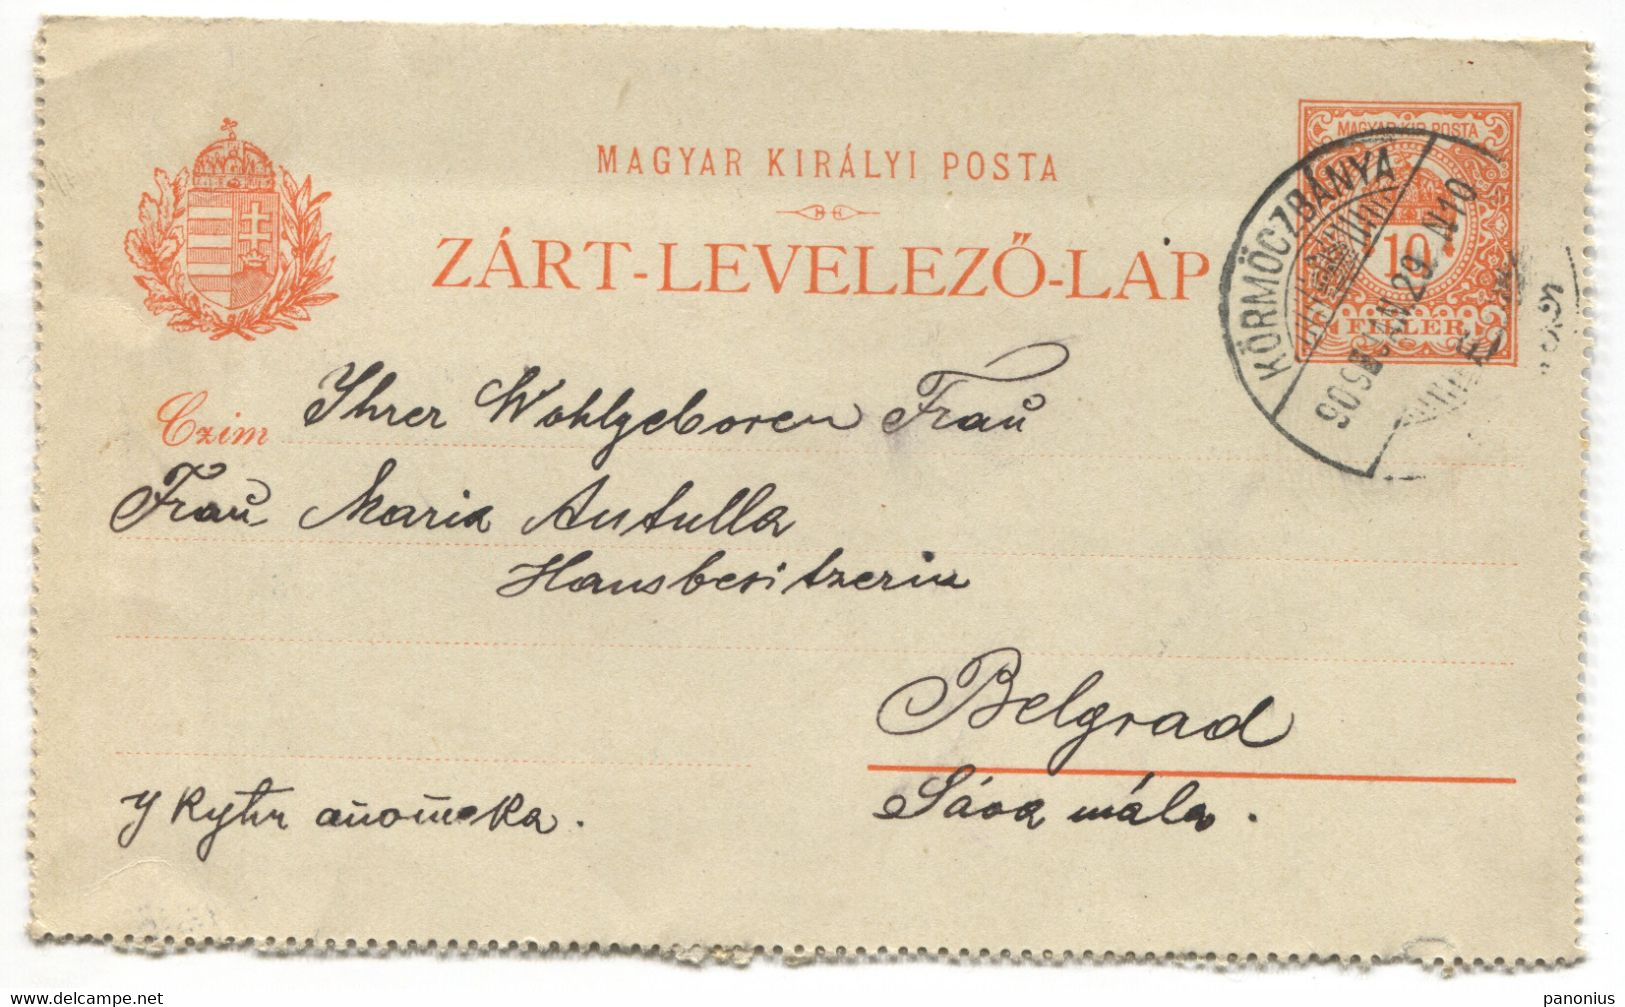 MAGYAR KIRÁLYI POSTA
ZÁRT-LEVELEZŐ-LAP
MAGYAR KIR. POSTA
10
FILLER
KÖRMÖCZBÁNYA
905 JUN. 29. N10
Czim Ihrer Wohlgeboren Frau
Frau Maria Antulla
Hausbesitzerin
Belgrad
Sáva mála.
www.delcampe.net
panonius